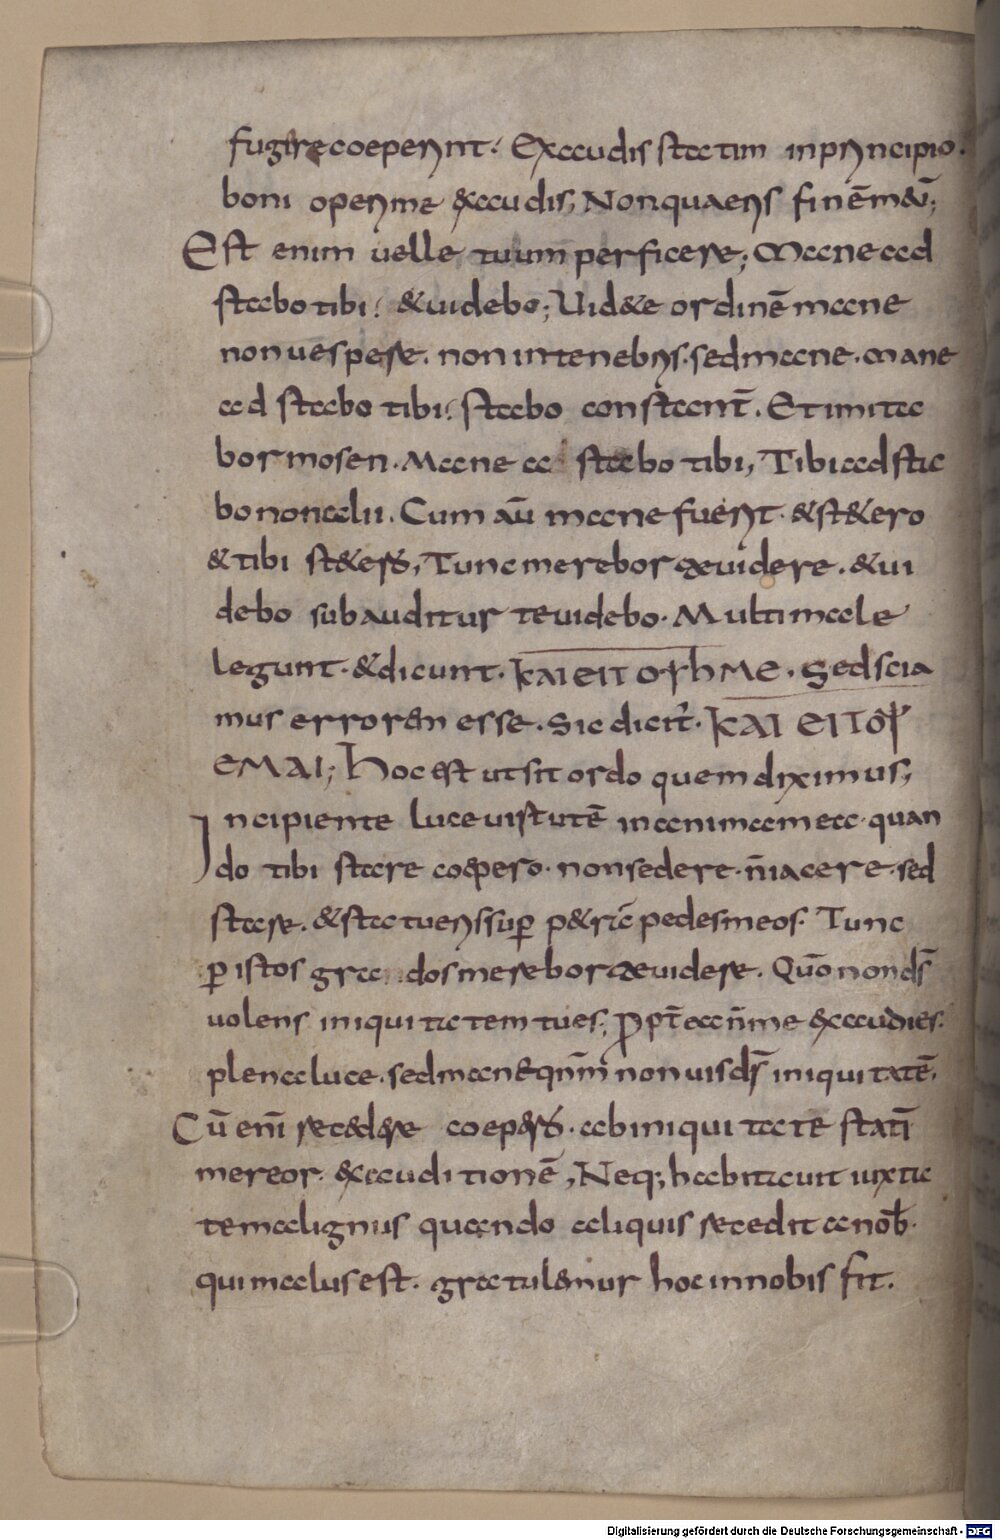 fugire coeperint. Exaudis statim inprincipio.
boni operis me &audis; Non quaeris finē mei;
Est enim uelle tuum perficere; Mane ad
stabo tibi. &uidebo; Uid&e ordinē mane
non uespere. non in tenebris. sed mane. mane
ad stabo tibi. stabo constant̄. Et imita
bor mosen. Mane a stabo tibi, Tibi adsta
bo non alii. Cum aū mane fuerit. &st&ero
& tibi st&ero, Tunc merebor te uidere. &ui
debo subauditur te uidebo. Multi male
legunt. &dicunt. ΚΑΙ ΕΠΟΨΗΜΕ. Sed scia
mus errorem esse. Sic dicit. ΚΑΙ ΕΠΟΨ
ΕΜΑΙ; Hoc est ut sit ordo quem diximus;
Incipiente luce uirtutē in anima mea. quan
do tibi stare coepero. non sedere. ñ iacere. sed
stare. &statueris sup p&rā pedes meos. Tunc
p istos gra dos merebor te uidere. Quō non ds̄
uolens iniquitatem tu es; Propt̄ea ñ me &audies.
plena luce. sed mane qm̄ non uis ds̄ iniquitatē.
Cū enī recedere coepero. ab iniquitate statī
mereor. &auditionē, Neq; habitauit iuxta
te malignus quando aliquis recedit a nob̄.
qui malus est. gratulemur hoc in nobis fit.
Digitalisierung gefördert durch die Deutsche Forschungsgemeinschaft - DFG